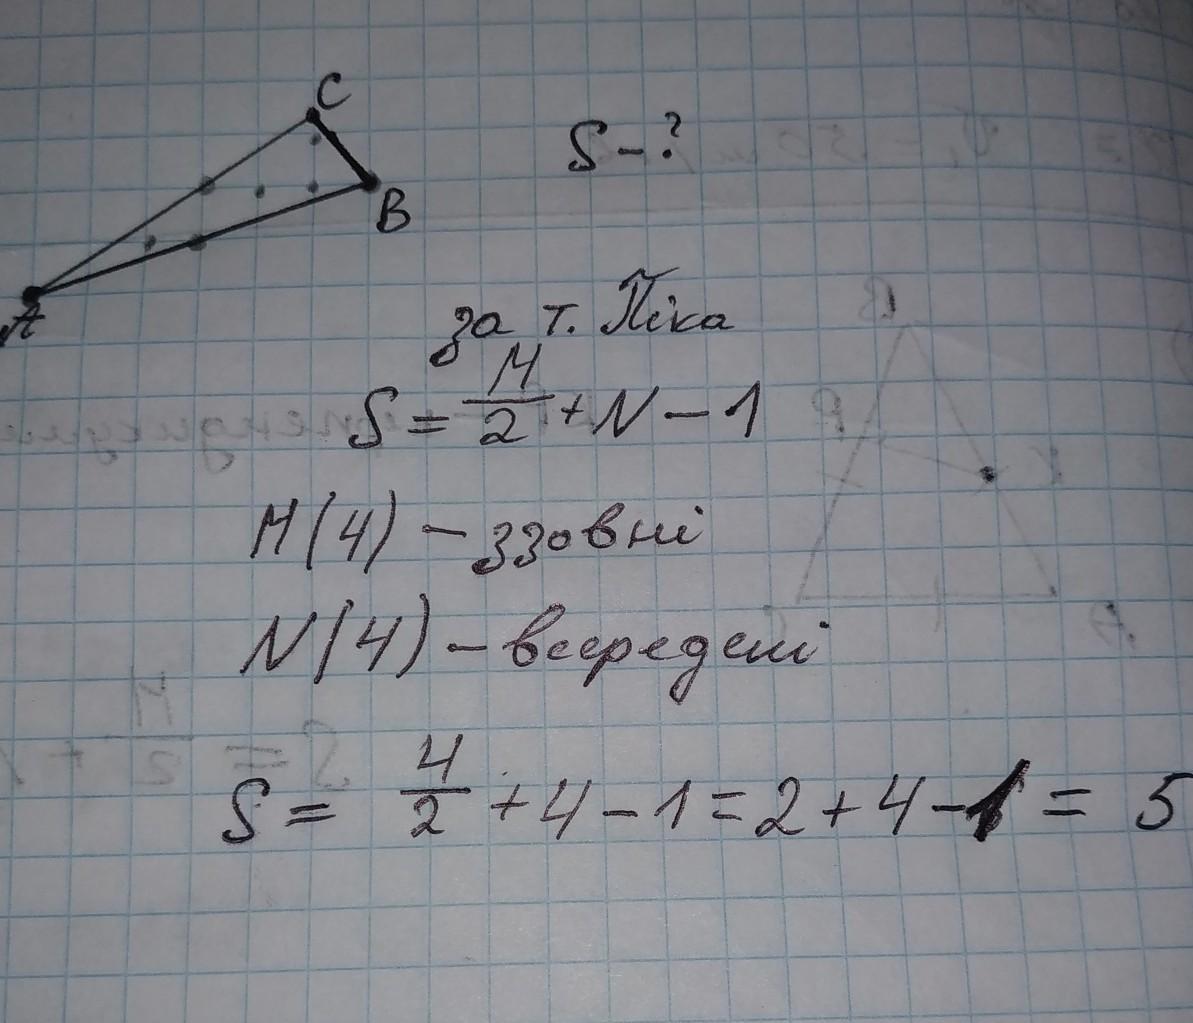 C
S-?
B
A
за т. Піка
S = М/2 + N - 1
М(4) - ззовні
N(4) - всередені
S = 4/2 + 4 - 1 = 2 + 4 - 1 = 5